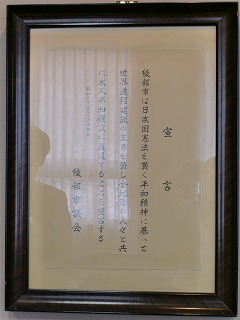 宣言
綾部市は日本国憲法を貫く平和精神に基いて
世界連邦建設の主旨を賛し全地球の人々と共
に永久平和確立に邁進することを宣言する
綾部市議会